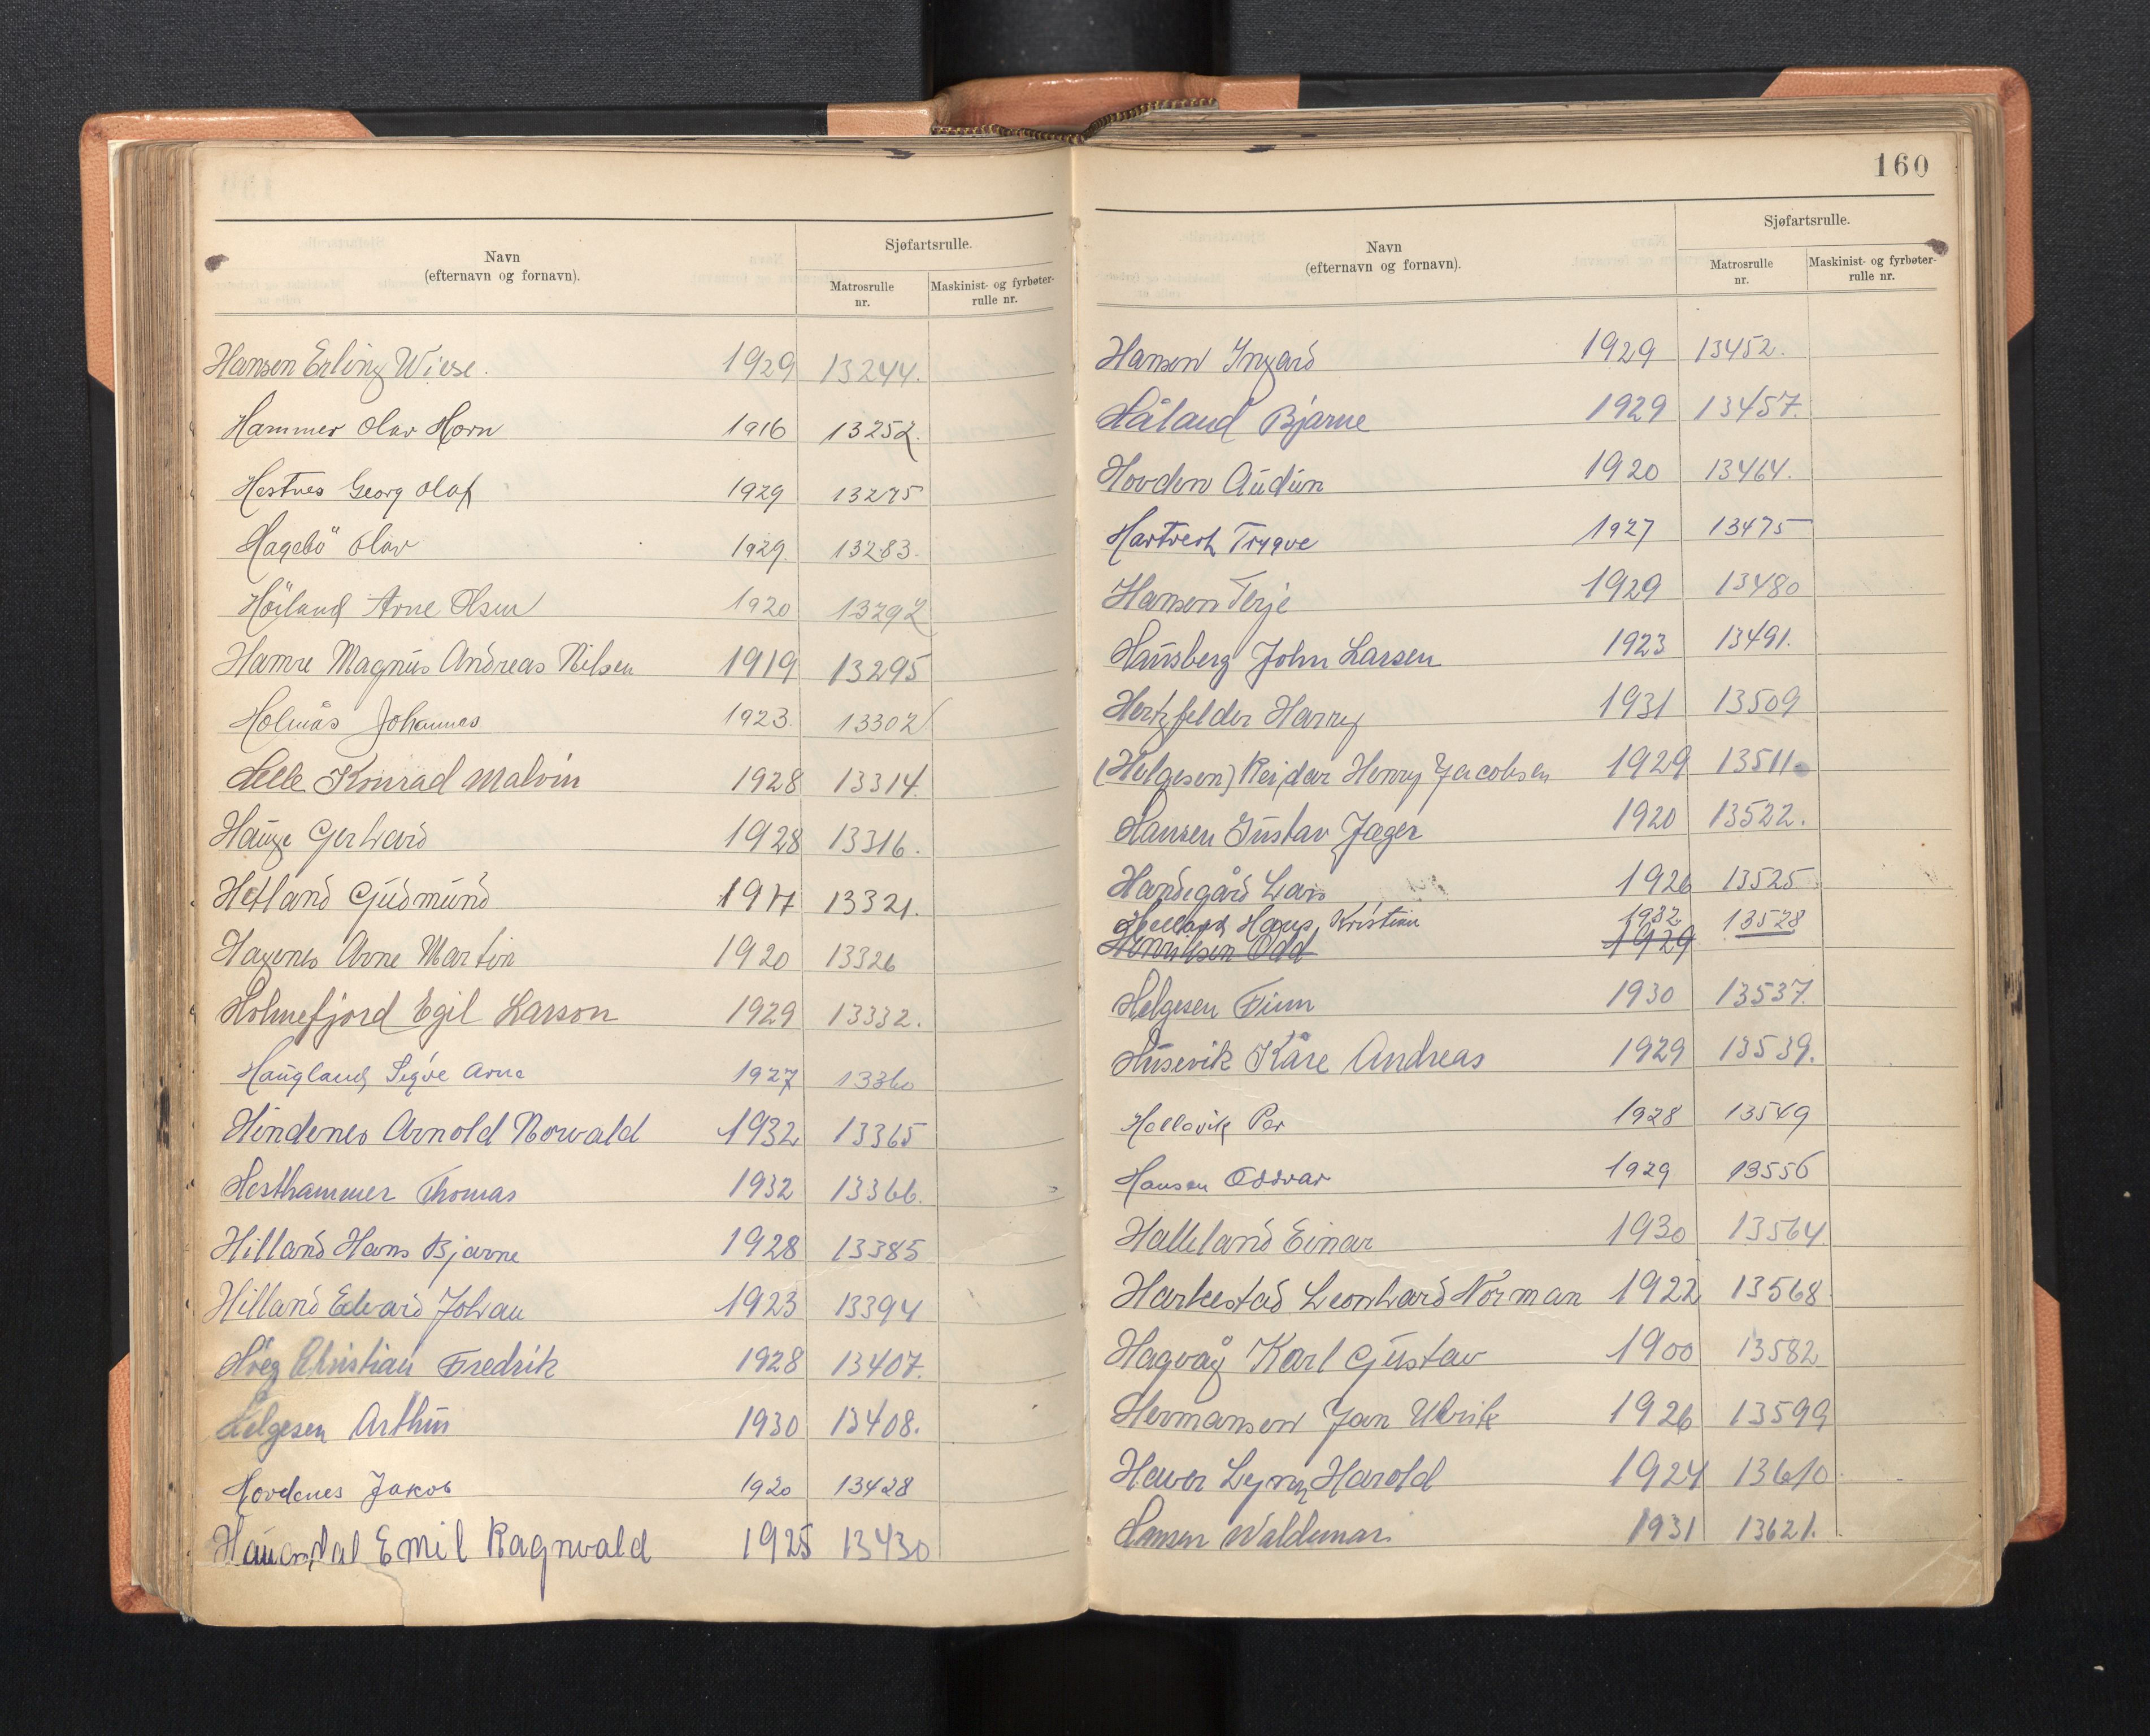 Navn
(efternavn og fornavn).
Sjøfartsrulle.
Matrosrulle
nr.
Maskinist- og fyrbøter-
rulle nr.
Hansen Erling Wiese. 1929 13244.
Hammer Olav Horn 1916 13252.
Hestnes Georg Olaf 1929 13275
Hagebö Olav 1929. 13283.
Höiland Arne Olsen 1920 13292
Hamre Magnus Andreas Nilsen 1919 13295
Holmås Johannes 1923. 13302
Helle Konrad Malvin 1928 13314.
Hauge Gerhard 1928 13316.
Hetland Gudmund 13321.
Hagenes Arne Martin 1920 13326
Holmefjord Egil Larson 1929 13332.
Haugland Sigve Arne 1927 13360
Hindenes Arnold Norvald 1932 13365
Hesthammer Thomas 1932 13366.
Hilland Hans Bjarne 1928 13385
Hilland Edvard Johan 1923 13394
Höeg Christian Fredrik 1928 13407.
Helgesen Arthur 1930 13408.
Hovdenes Jakob 1920 13428
Emil Ragnvald 1925 13430
160
Navn
(efternavn og fornavn).
Sjøfartsrulle.
Matrosrulle
nr.
Maskinist- og fyrbøter-
rulle nr.
Hansen Ingard 1929 13452.
Håland Bjarne 1929 13457.
Hovden Audun 1920 13464.
Hartveit Trygve 1927 13475
Hansen Terje 1929 13480
Hausberg John Larsen 1923 13491.
Hertzfelder Harry 1931 13509
(Helgesen) Reidar Henry Jacobsen 1929 13511
Hansen Gustav Jæger 1920 13522.
Handegård Lars 1926 13525
Helland Hans Kristian 1932 13528
Henriksen Odd 1929
Helgesen Finn 1930 13537.
Husevik Kåre Andreas 1929 13539.
Hellevik Per 1928 13549
Hansen Oddvar 1929 13556
Halleland Einar 1930 13564
Harkestad Leonhard Norman 1922 13568
Hagvåg Karl Gustav 1900 13582
Hermansen Jan Ulrik 1926 13599
Haver Harold 1924 13610
Hansen Waldemar 1931 13621.